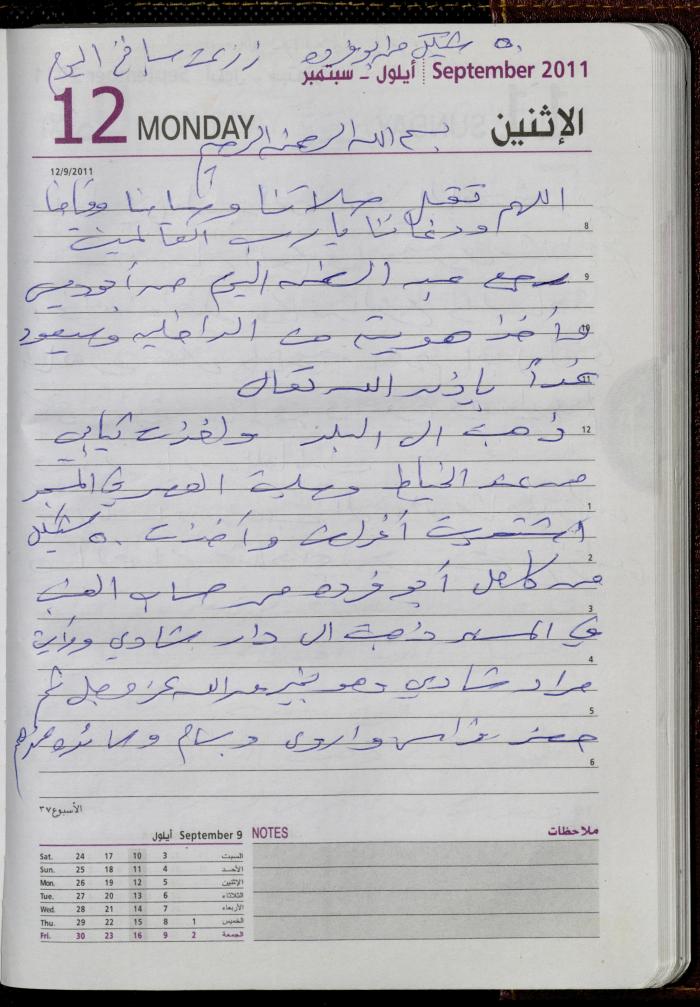 ٥٠ شيكل من ابو فرده زرعت سبانخ اليوم
أيلول - سبتمبر September 2011
12 MONDAY الإثنين
بسم الله الرحمن الرحيم
12/9/2011
اللهم تقبل صلاتنا وصيامنا وقيامنا
8
ودعائنا يا رب العالمين
9
رجع عبد اليوم من أبوديس
10
وأخذ هويته من الداخلية وسيعود
11
غداً بإذن الله تعالى
12
ذهبت الى البلد وأخذت
من عند الخياط وصليت العصر في المسجد
1
اشتريت أغراض وأخذت ٥٠ شيكل
2
من كامل أبو فرده من حساب
3
في المساء ذهبت الى دار شادي وزارني
4
مراد شادي وهو بخير من الله عز وجل ثم
5
حضر فراس واروى وبسام
6
الأسبوع ٣٧
September 9 أيلول
Sat. 24 17 10 3 السبت
Sun. 25 18 11 4 الأحد
Mon. 26 19 12 5 الإثنين
Tue. 27 20 13 6 الثلاثاء
Wed. 28 21 14 7 الأربعاء
Thu. 29 22 15 8 1 الخميس
Fri. 30 23 16 9 2 الجمعة
NOTES ملاحظات